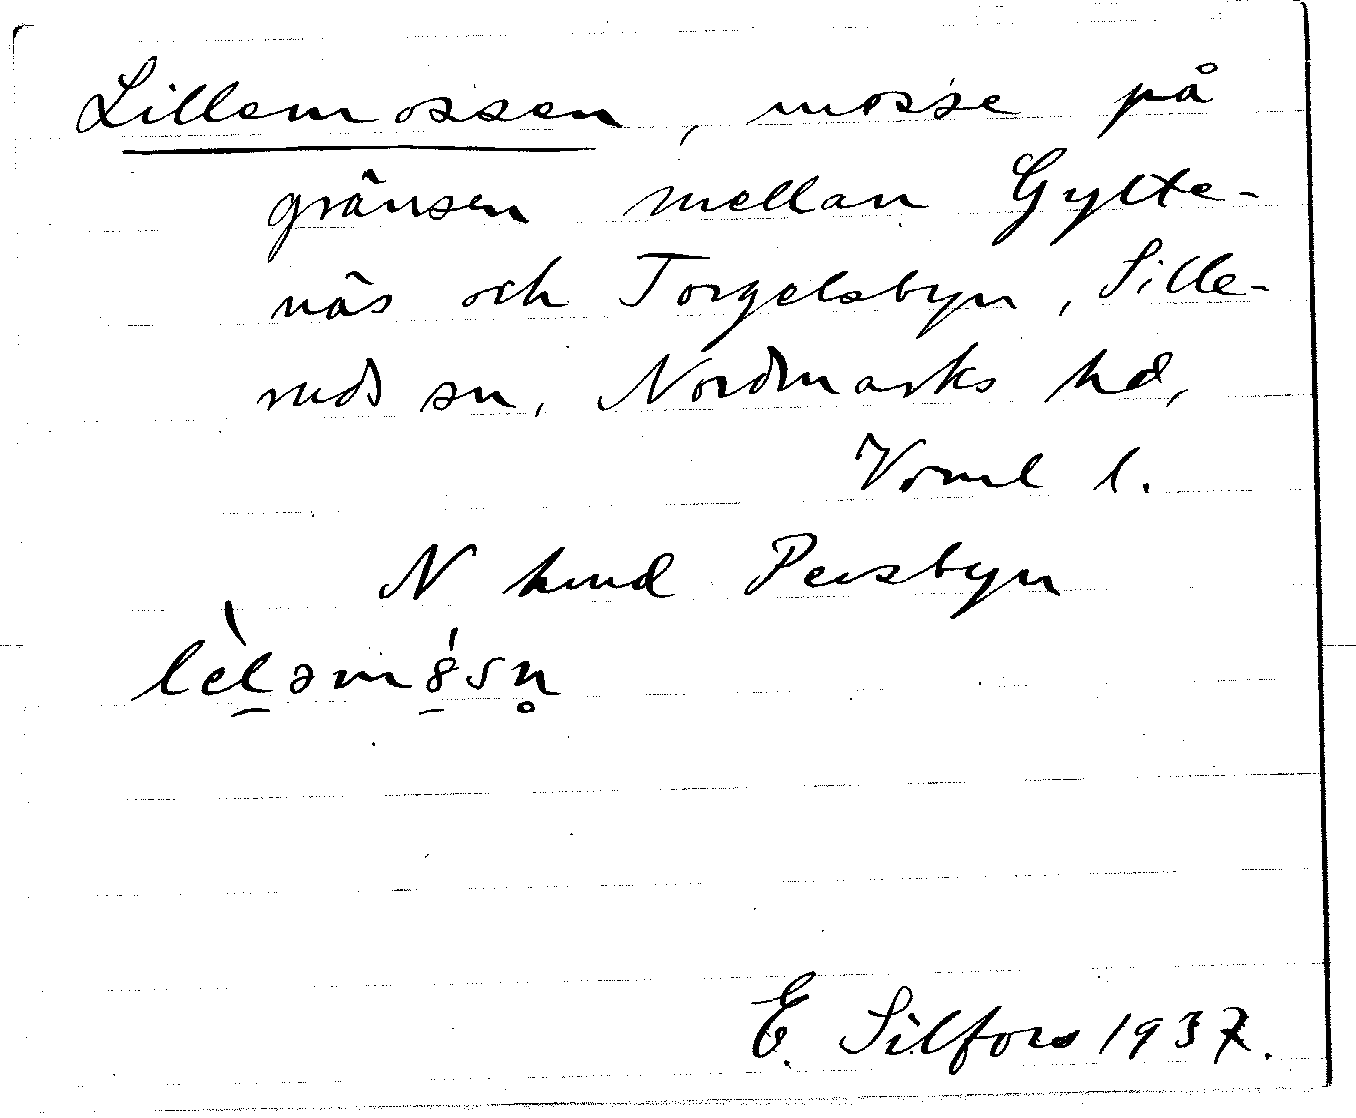 Lillemossen, mosse på
gränsen mellan Gylte-
näs och Torgelsbyn, Sille-
ruds sn, Nordmarks hd,
Vrml l.
N hmd Persbyn
lèləmósn̥
E. Silfors 1937.